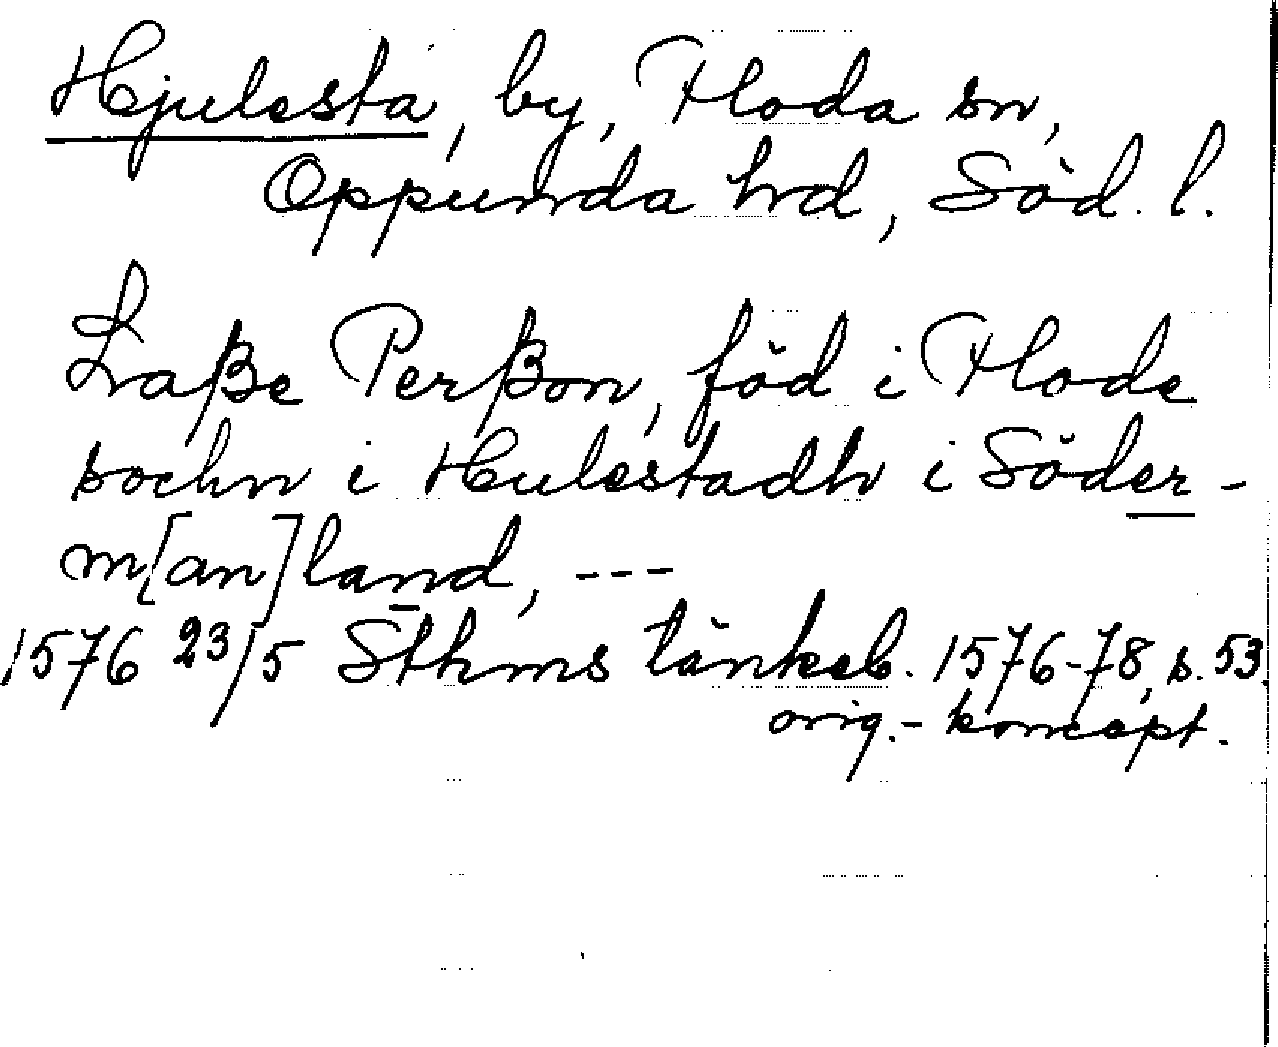 Hjulesta, by, Floda sn,
Oppunda hrd, Söd. l.
Laße Perßon, föd i Flode
sochn i Hulestadh i Söder-
m[an]land, ---
1576 23/5 Sthms tänkeb. 1576-78, s. 53.
orig.- koncept.